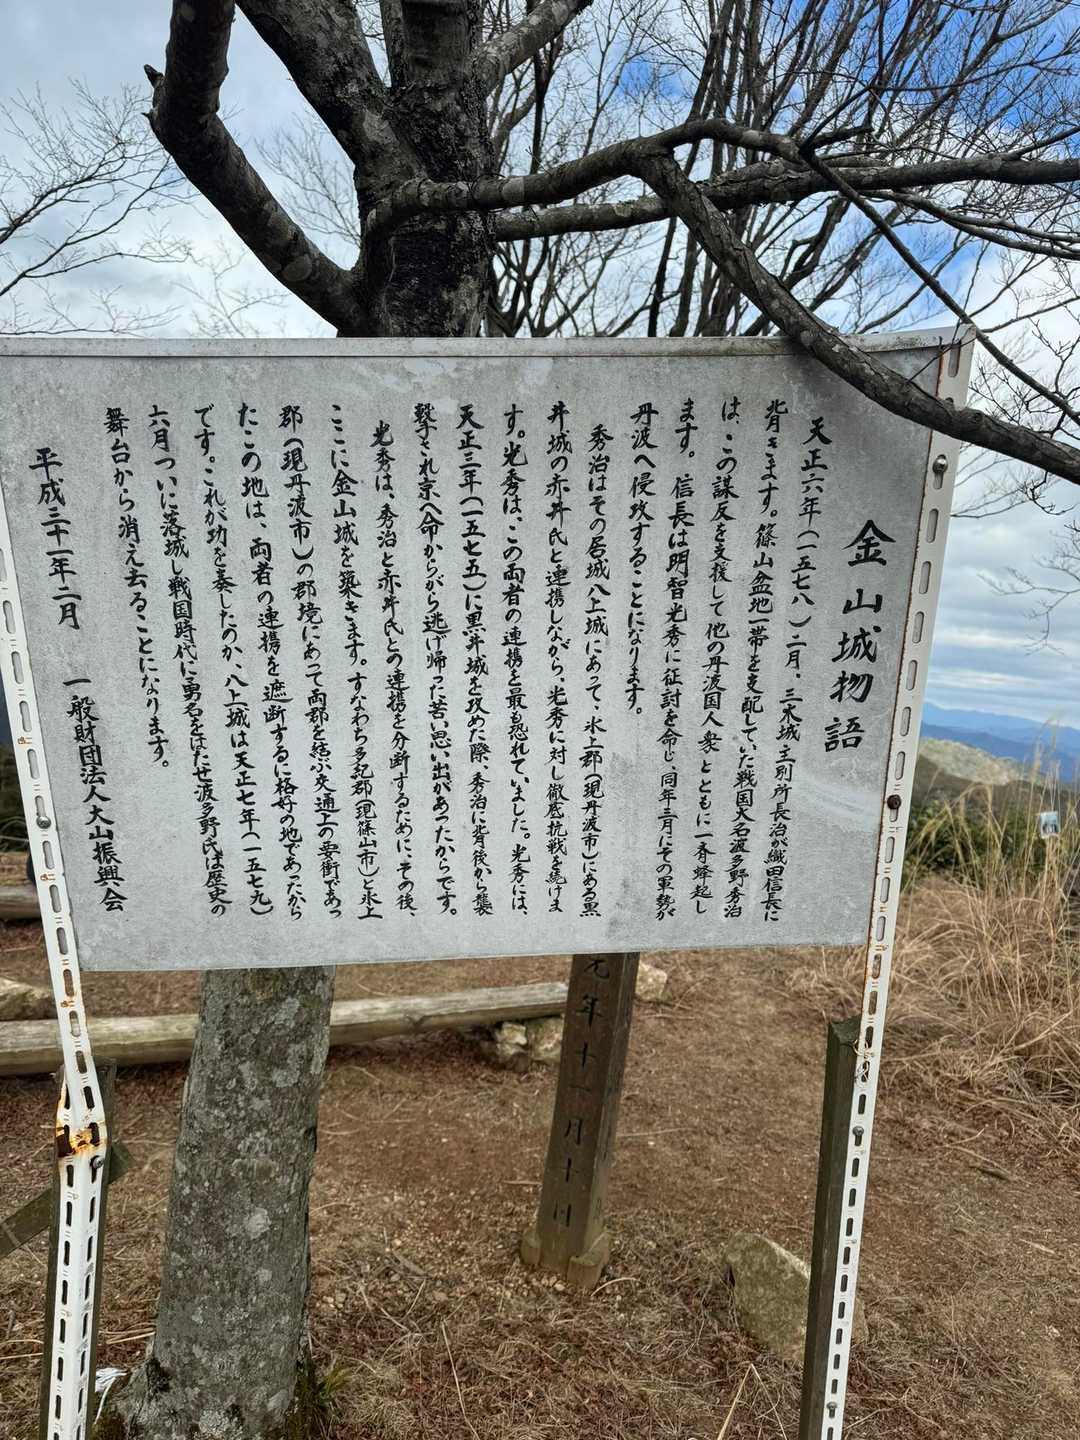 金山城物語
天正六年(一五七八)二月、三木城主別所長治が織田信長に
背きます。篠山盆地一帯を支配していた戦国大名波多野秀治
は、この謀反を支援して他の丹波国人衆とともに一斉蜂起し
ます。信長は明智光秀に征討を命じ、同年三月にその軍勢が
丹波へ侵攻することになります。
秀治はその居城八上城にあって、氷上郡(現丹波市)にある黒
井城の赤井氏と連携しながら、光秀に対し徹底抗戦を続けま
す。光秀は、この両者の連携を最も恐れていました。光秀には、
天正三年(一五七五)に黒井城を攻めた際、秀治に背後から襲
撃され京へ命からがら逃げ帰った苦い思い出があったからです。
光秀は、秀治と赤井氏との連携を分断するために、その後、
ここに金山城を築きます。すなわち多紀郡(現篠山市)と氷上
郡(現丹波市)の郡境にあって両郡を結ぶ交通上の要衝であっ
たこの地は、両者の連携を遮断するに格好の地であったから
です。これが功を奏したのか、八上城は天正七年(一五七九)
六月ついに落城し戦国時代に勇名をはたせ波多野氏は歴史の
舞台から消え去ることになります。
平成三十一年二月 一般財団法人大山振興会
元年十一月十日